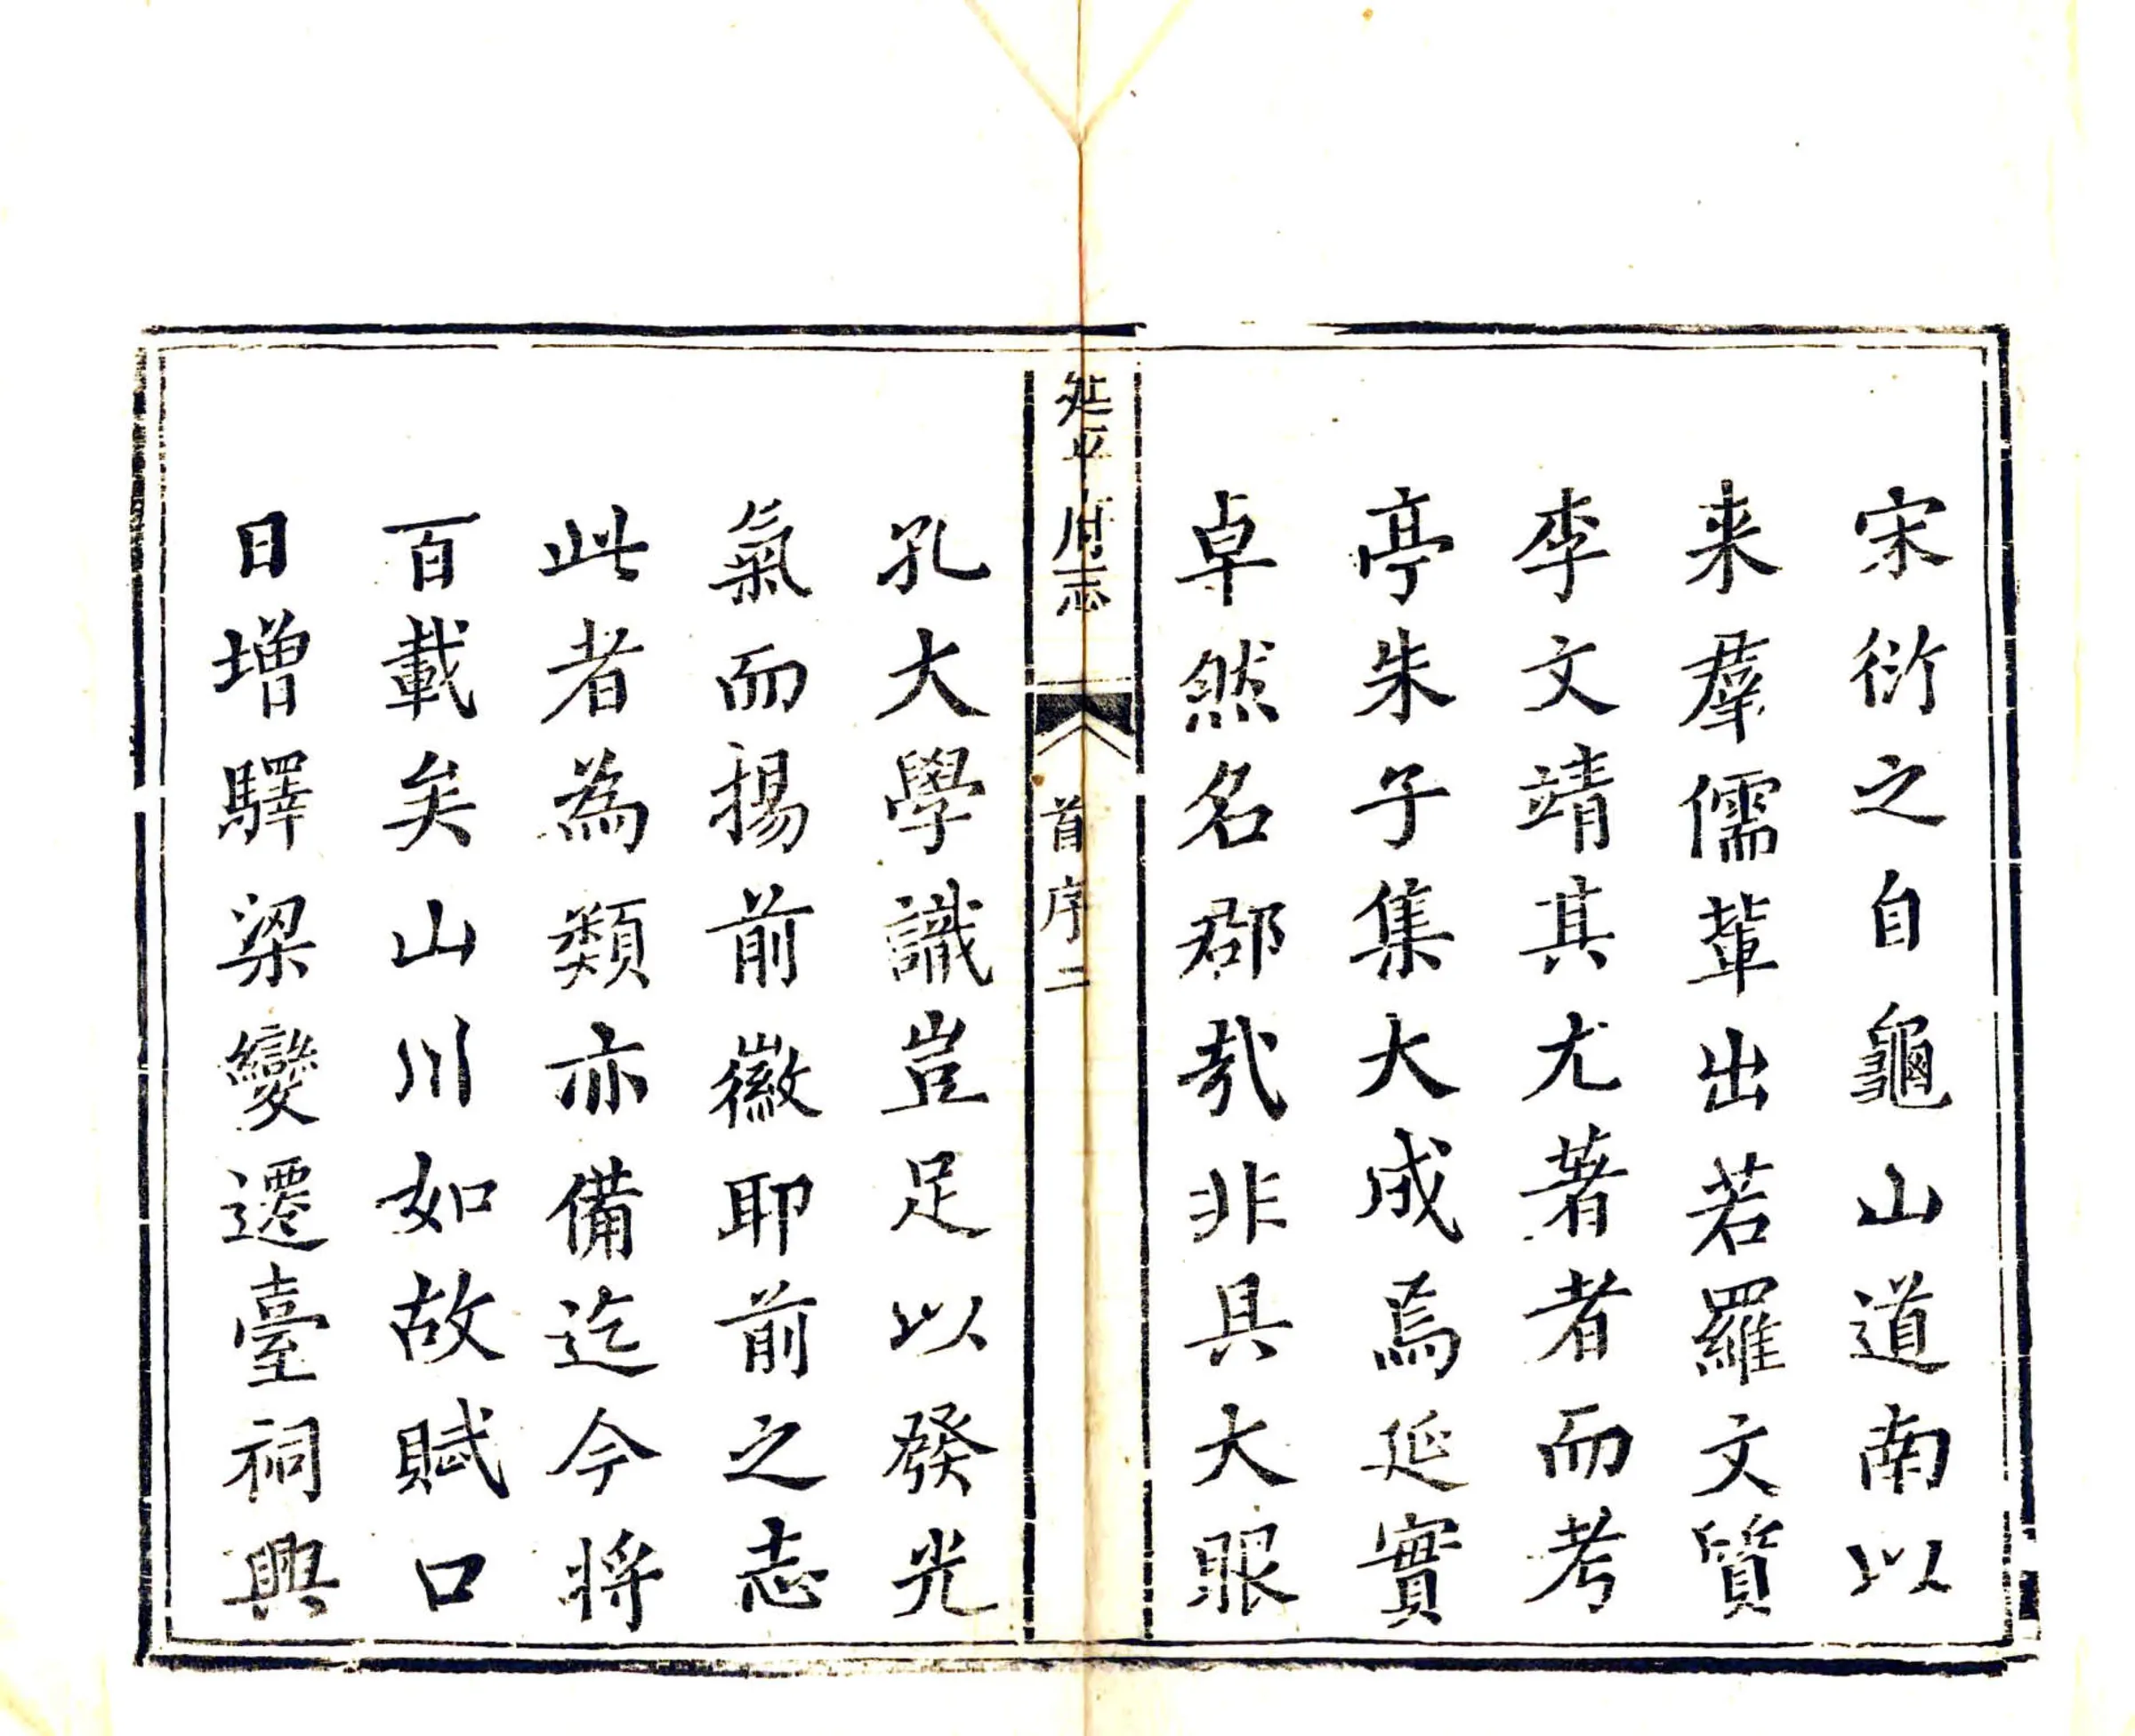 宋衍之自龜山道南以
来羣儒輩出若羅文質
李文靖其尤著者而考
亭朱子集大成焉延實
卓然名郡㢤非具大眼
延平府志
首序二
孔大學識豈足以發光
氣而揚前徽耶前之志
此者為類亦備迄今将
百載矣山川如故賦口
日增驛梁變遷臺祠興